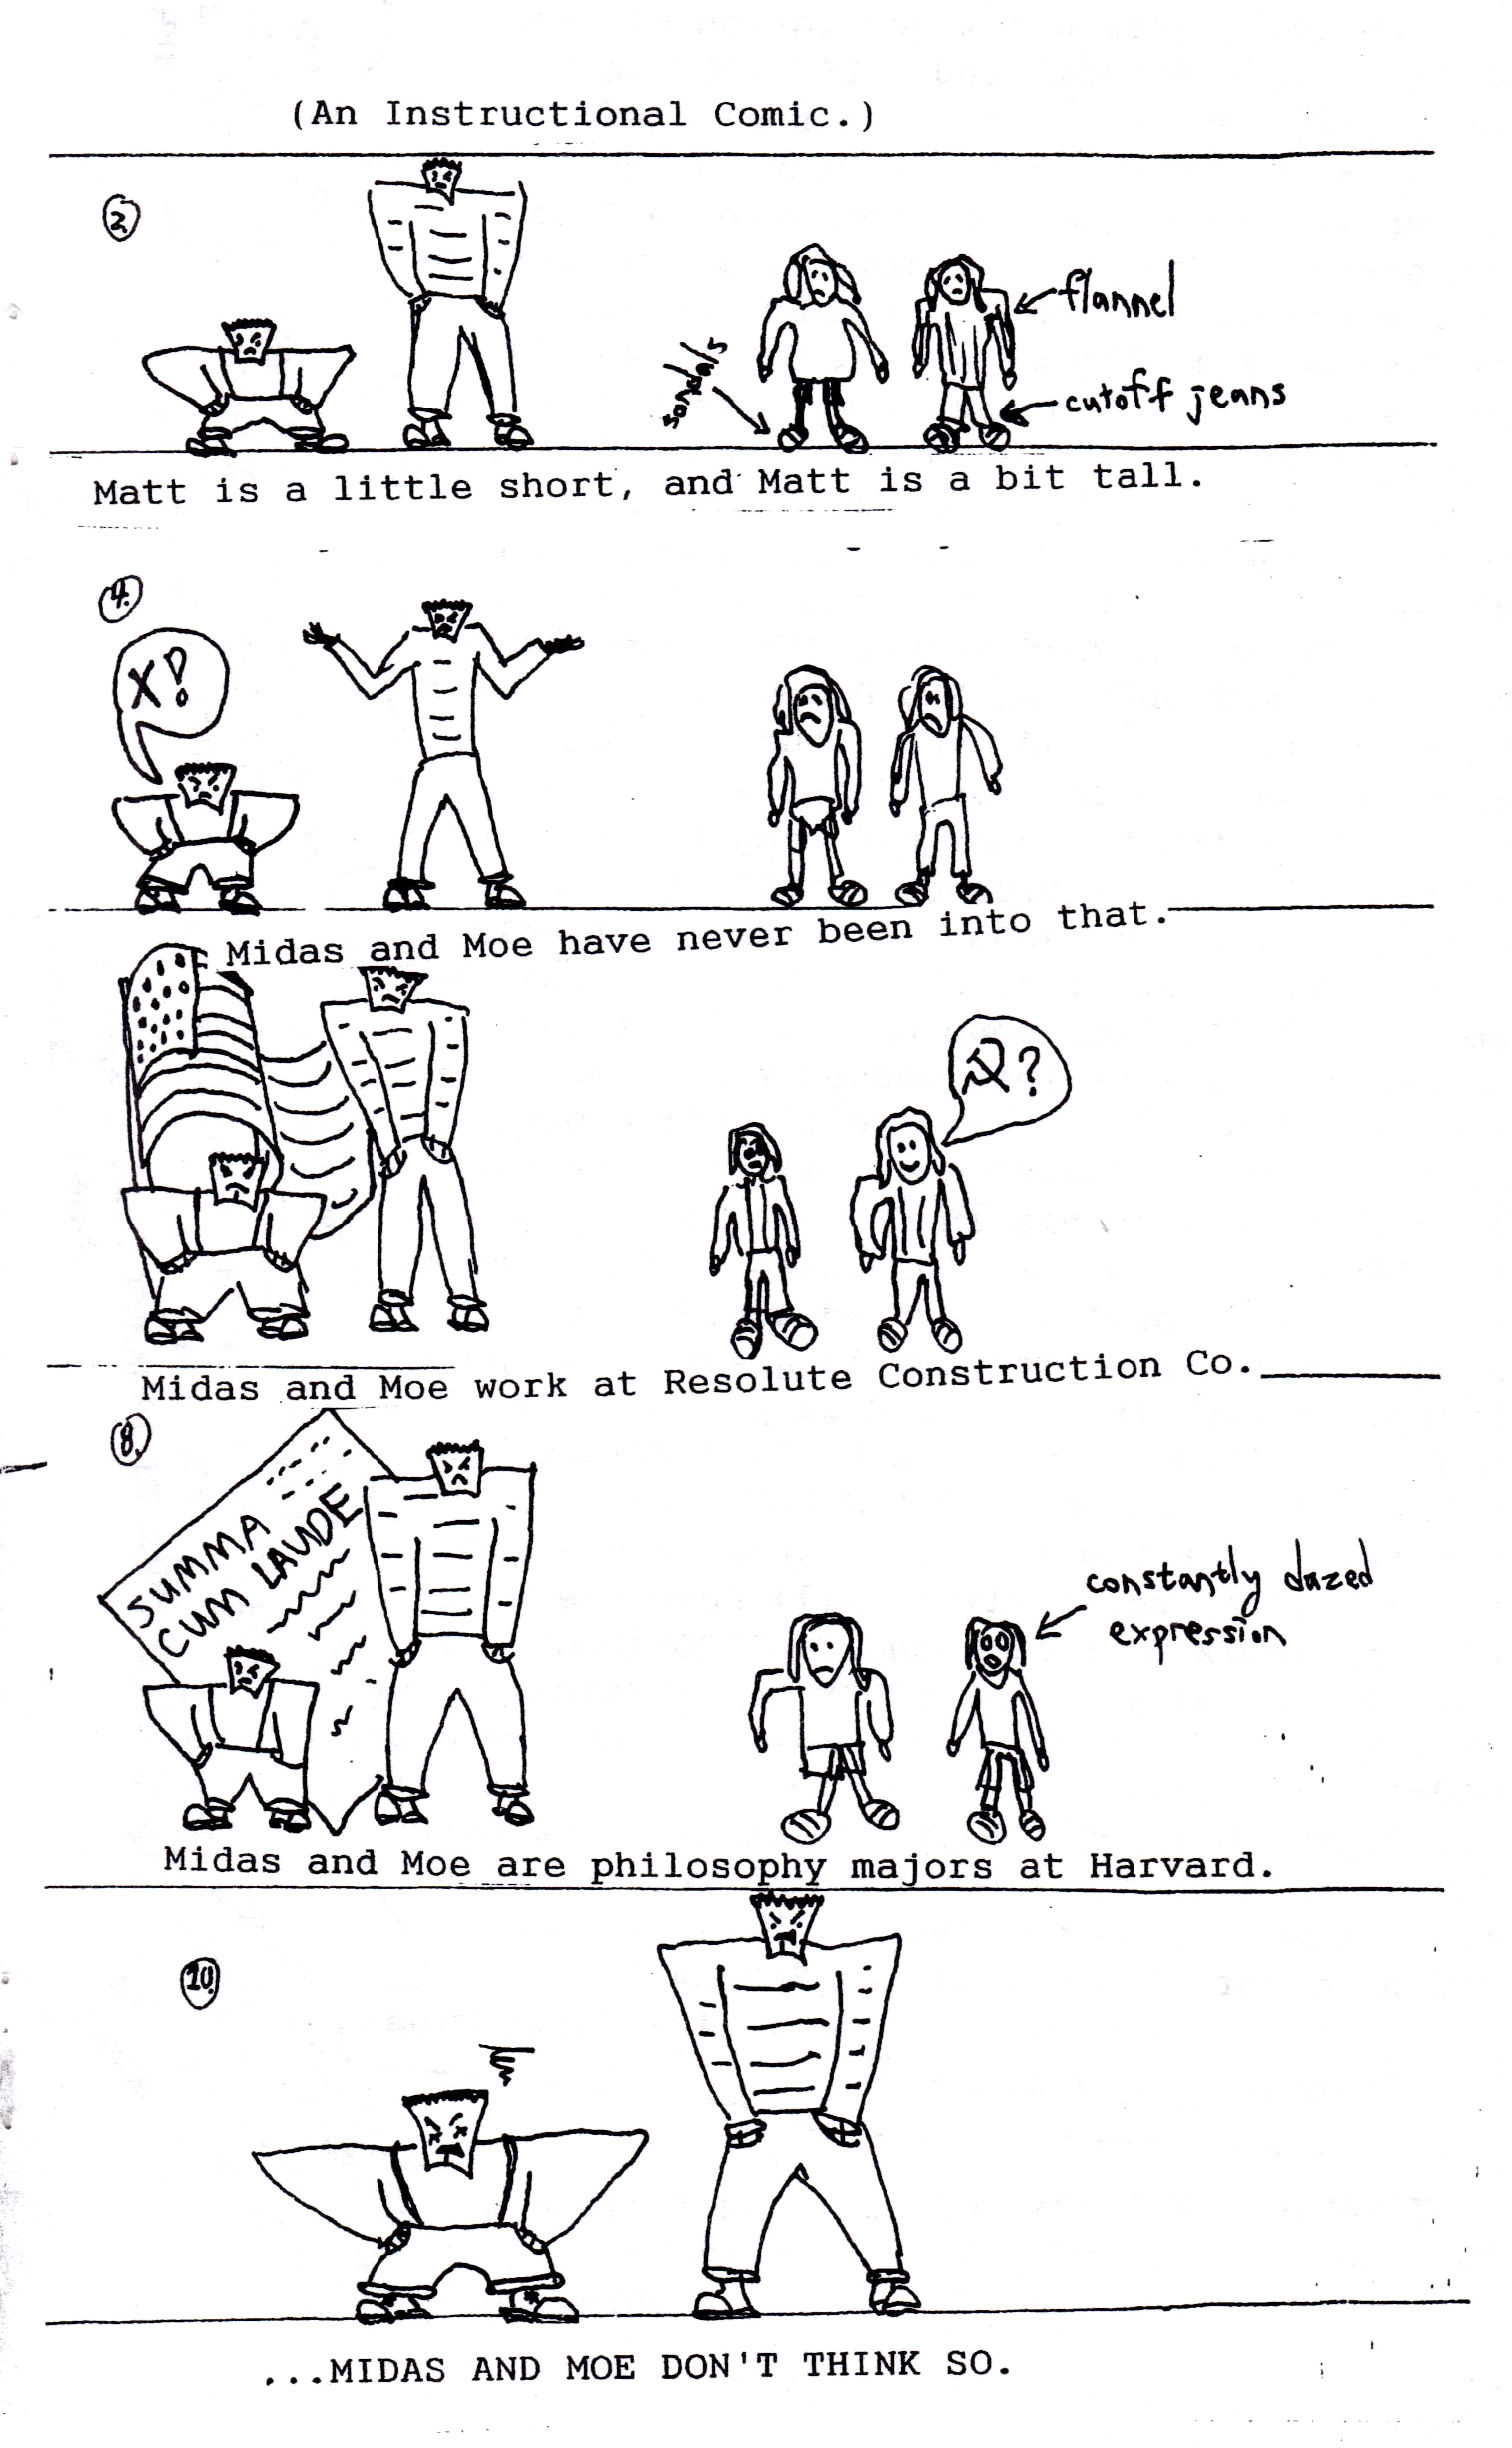 (An Instructional Comic.)
2.
flannel
sandals
cutoff jeans
Matt is a little short, and Matt is a bit tall.
4.
X!
Midas and Moe have never been into that.
☭?
Midas and Moe work at Resolute Construction Co.
8.
SUMMA
CUM LAUDE
constantly dazed
expression
Midas and Moe are philosophy majors at Harvard.
10.
...MIDAS AND MOE DON'T THINK SO.